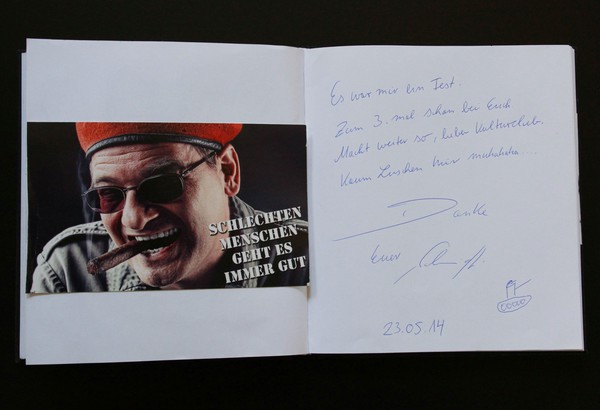 SCHLECHTEN
MENSCHEN
GEHT ES
IMMER GUT
Es war mir ein Fest.
Zum 3. mal schon bei Euch
Macht weiter so, lieber Kulturclub.
Kaum Luschen hier
Danke
Euer
23.05.14